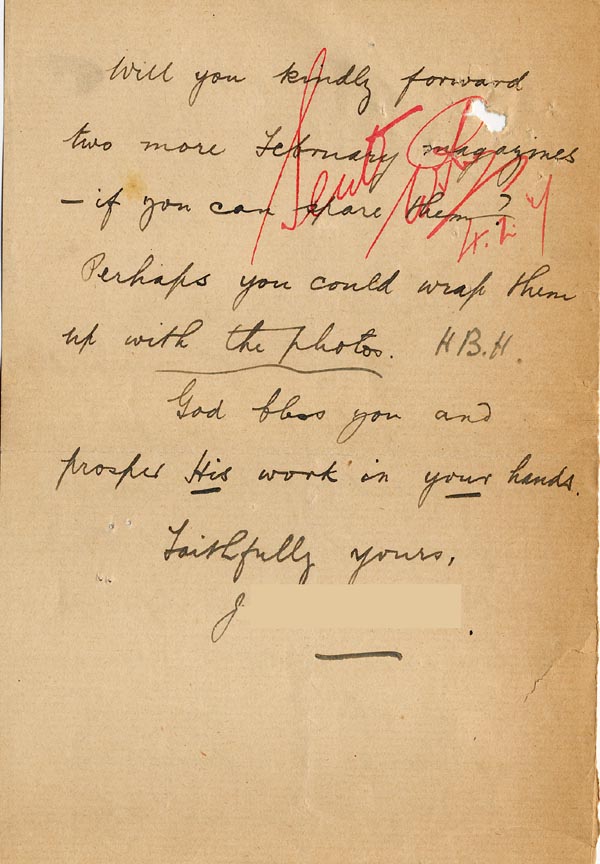 Will you kindly forward
two more February magazines
– if you can spare them?
Perhaps you could wrap them
up with the photos. H.B.H.
God bless you and
prosper His work in your hands.
Faithfully yours,
J
Sent